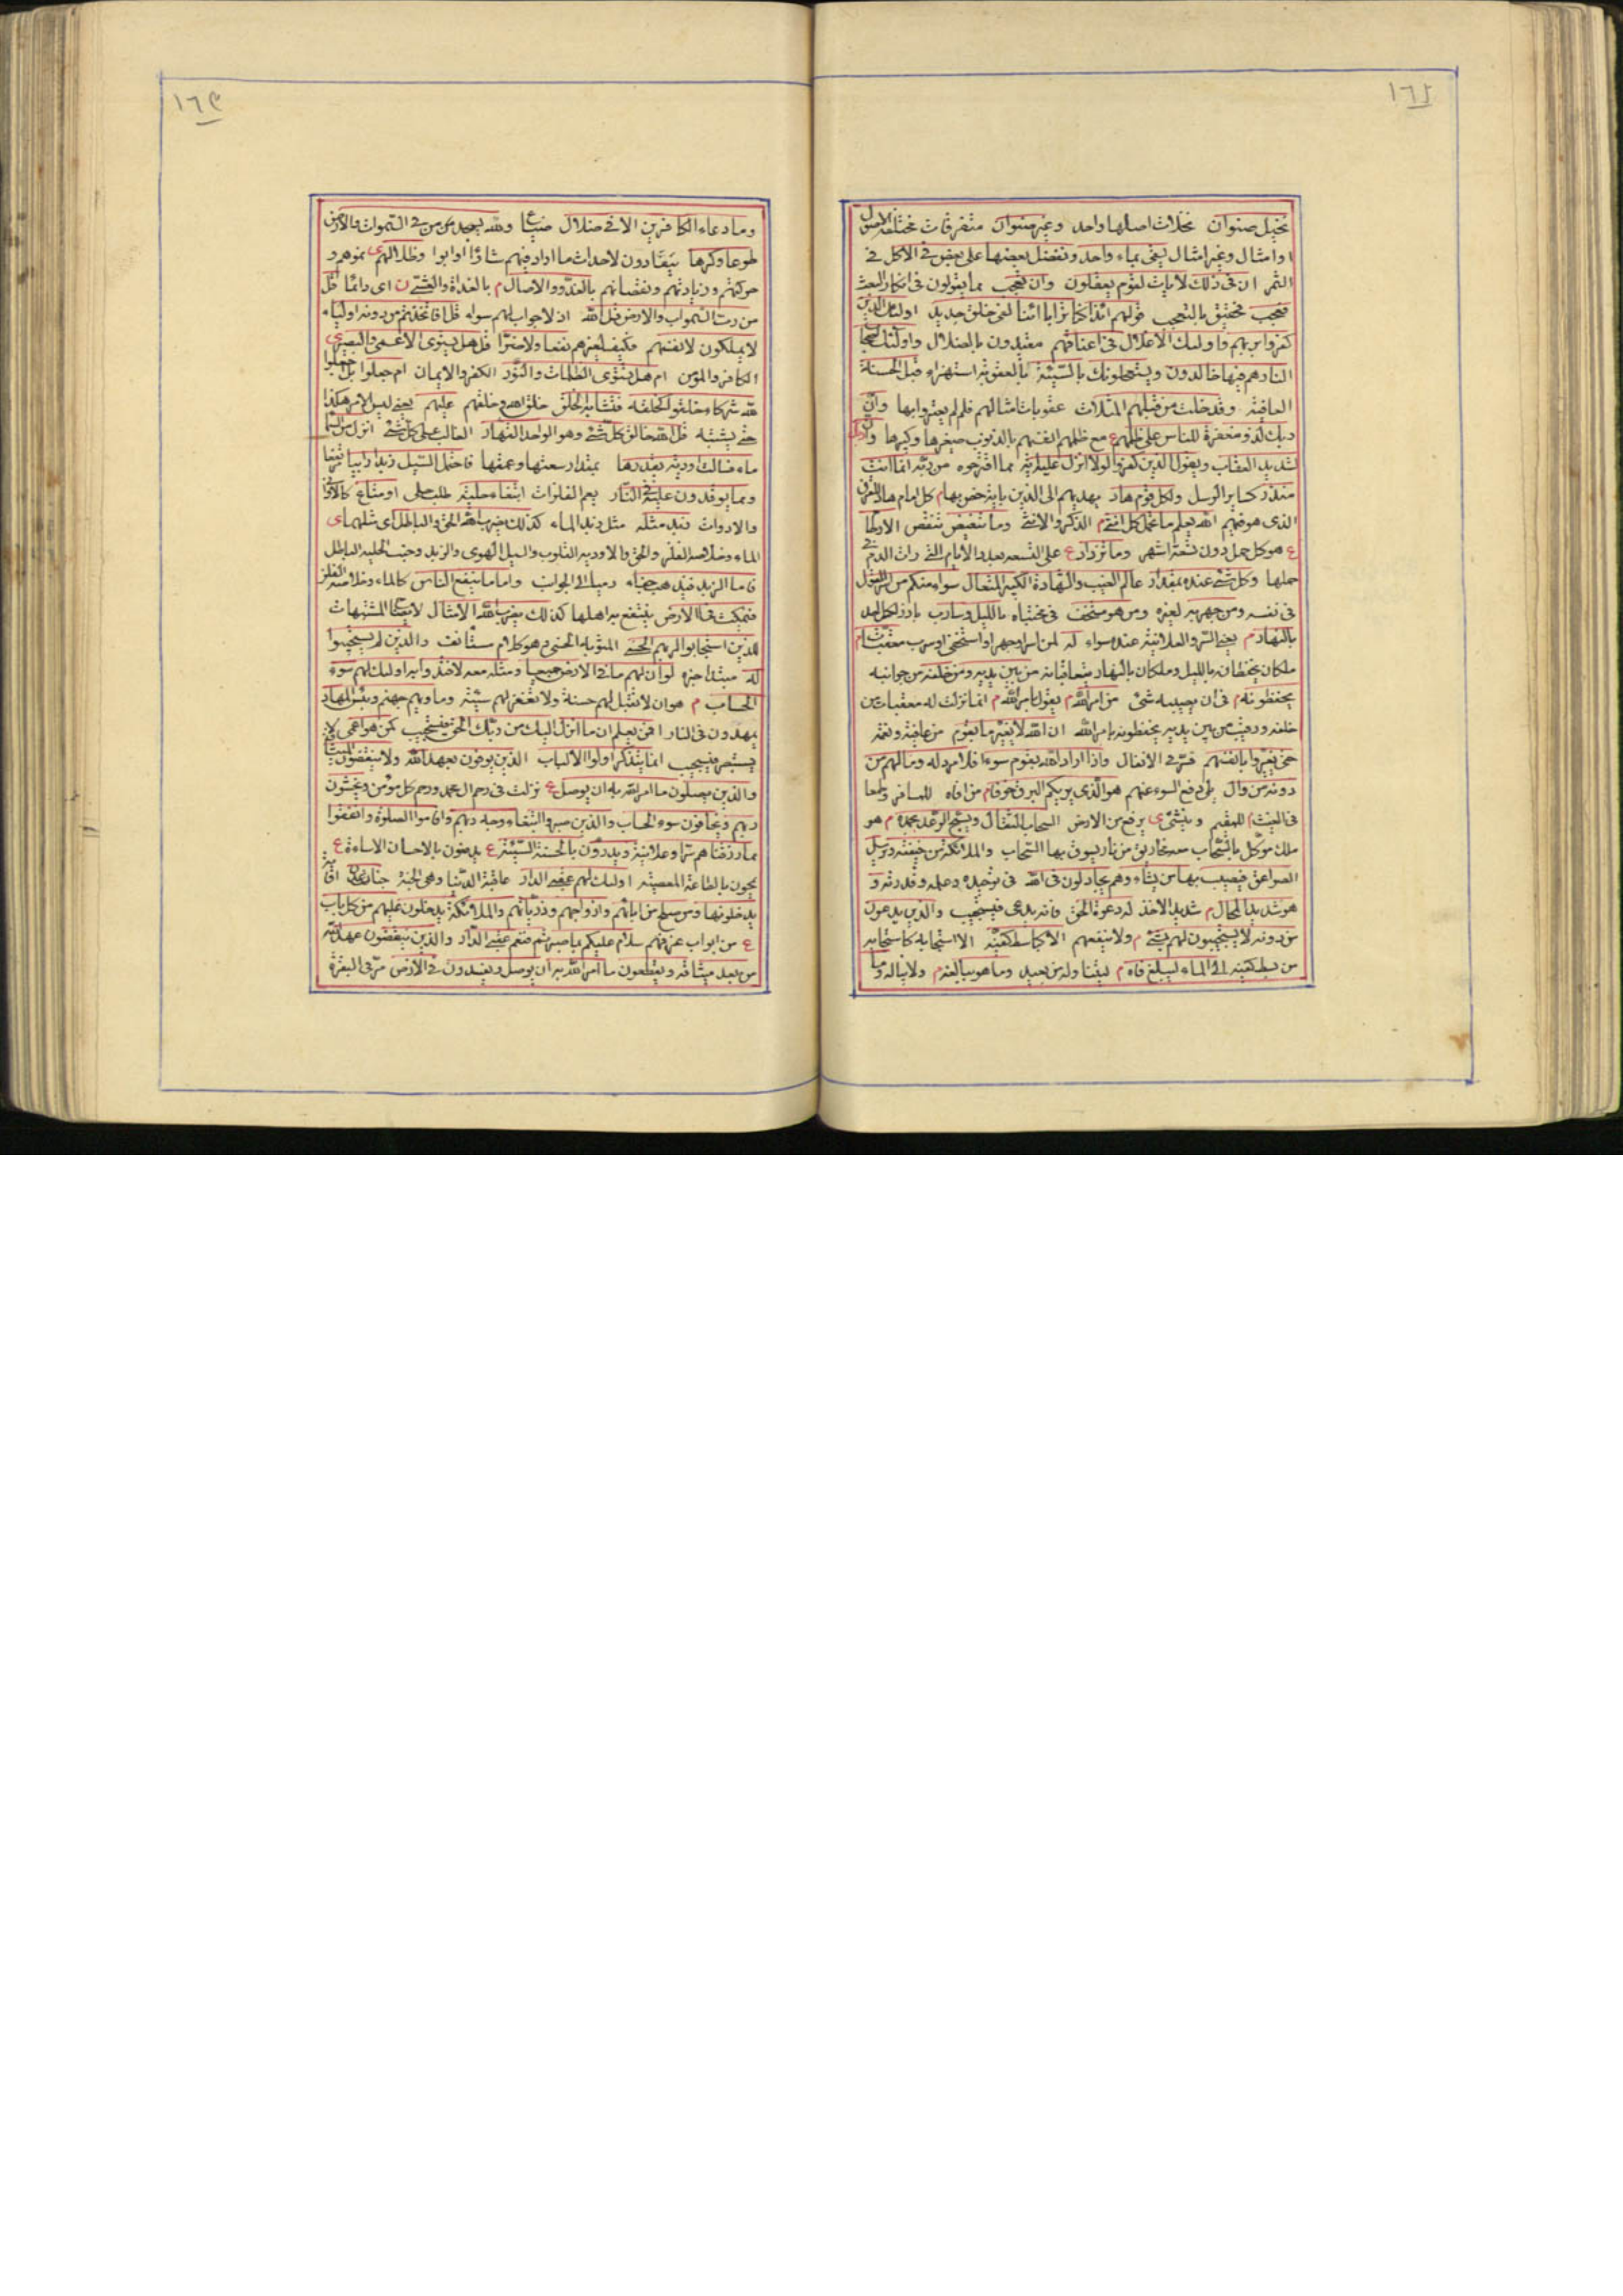 ١٦٤
نخيل صنوان نخلات اصلها واحد وغير صنوان متفرقات مختلفة الاصول
او امثال وغير امثال يسقى بماء واحد ونفضل بعضها على بعض في الاكل في
الثمر ان في ذلك لايات لقوم يعقلون وان تعجب مما يقولون في انكار البعث
فعجب فحقيق بالتعجب قولهم ائذا كنا ترابا ائنا لفى خلق جديد اولئك الذين
كفروا بربهم واولئك الاغلال في اعناقهم مقيدون بالضلال واولئك اصحاب
النار هم فيها خالدون ويستعجلونك بالسيئة بالعقوبة استهزاء قبل الحسنة
العافية وقد خلت من قبلهم المثلات عقوبات امثالهم فلم لم يعتبروا بها وان
ربك لذو مغفرة للناس على ظلمهم ع مع ظلمهم انفسهم بالذنوب صغيرها وكبيرها وان ربك
لشديد العقاب ويقول الذين كفروا لولا انزل عليه اية مما اقترحوه من ربه انما انت
منذر كساير الرسل ولكل قوم هاد يهديهم الى الدين باية خص بها م كل امام هاد للقرن
الذى هو فيهم الله يعلم ما تحمل كل انثى م الذكر والانثى وما تغيض تنقص الارحام
ع هو كل حمل دون تسعة اشهر وما تزداد ع على التسعه بعدد الايام التى رات الدم في
حملها وكل شئ عنده بمقدار عالم الغيب والشهادة الكبير المتعال سواء منكم من اسر القول
في نفسه ومن جهر به لغيره ومن هو مستخف في مختباه بالليل وسارب بارز لكل احد
بالنهار م يعنى السر والعلانية عنده سواء له لمن اسر او جهر او استخفى او سرب معقبات م
ملكان يحفظانه بالليل وملكان بالنهار يتعاقبانه من بين يديه ومن خلفه من جوانبه
يحفظونه م في ان يصيبه شئ من امر الله م يقول بامر الله م انما نزلت له معقبات من
خلفه ورقيب من بين يديه يحفظونه بامر الله ان الله لا يغير ما بقوم من عافية ونعمة
حتى يغيروا ما بانفسهم فسر في الانفال واذا اراد الله بقوم سوءا فلا مرد له وما لهم من
دونه من وال يلى دفع السوء عنهم هو الذى يريكم البرق خوفا م من افاه للمسافر وطمعا
في الغيث م للمقيم وينشئ ى يرفع من الارض السحاب الثقال ويسبح الرعد بحمده م هو
ملك موكل بالسحاب معه مخاريق من نار يسوق بها السحاب والملائكة من خيفته ويرسل
الصواعق فيصيب بها من يشاء وهم يجادلون في الله في توحيده وعلمه وقدرته و
هو شديد المحال م شديد الاخذ له دعوة الحق فانه يدعى فيستجيب والذين يدعون
من دونه لا يستجيبون لهم بشئ م ولا ينفعهم الا كباسط كفيه الا استجابة كاستجابة
من بسط كفيه الى الماء ليبلغ فاه م ليتناوله من بعيد وما هو ببالغه م ولا يناله وما
١٦٥
وما دعاء الكافرين الا في ضلال ضياع ولله يسجد من في السموات والارض
طوعا وكرها ينقادون لاحداث ما اراد فيهم شاؤا او ابوا وظلالهم ى بنموهم و
حركتهم وزيادتهم ونقصانهم بالغدو والاصال م بالغداة والعشى ن اى دائما قل
من رب السموات والارض قل الله اذ لا جواب لهم سواه قل افاتخذتم من دونه اولياء
لا يملكون لانفسهم فكيف لغيرهم نفعا ولا ضرا قل هل يستوى الاعمى والبصير ى
الكافر والمؤمن ام هل تستوى الظلمات والنور الكفر والايمان ام جعلوا بل جعلوا
لله شركاء خلقوا كخلقه فتشابه الخلق خلق الله وخلقهم عليهم يعنى ليس الامر هكذا
حتى يشتبه قل الله خالق كل شئ وهو الواحد القهار الغالب على كل شئ انزل من السماء
ماء فسالت اودية بقدرها بمقدار سعتها وعمقها فاحتمل السيل زبدا رابيا مرتفعا
ومما يوقدون عليه في النار يعم الفلزات ابتغاء حلية طلب حلى او متاع كالاوانى
والادوات زبد مثله مثل زبد الماء كذلك يضرب الله الحق والباطل اى مثلهما ى
الماء وخلاصه الفلز والحق والاودية القلوب والسيل الهوى والزبد وخبث الحلية الباطل
فاما الزبد فيذهب جفاء رميا الى الجوانب واما ما ينفع الناس كالماء وخلاصه الفلز
فيمكث في الارض ينتفع به اهلها كذلك يضرب الله الامثال لايضاح المشتبهات
للذين استجابوا لربهم الحسنى المثوبة الحسنى وهو كلام مستانف والذين لم يستجيبوا
له مبتدا خبره لو ان لهم ما في الارض جميعا ومثله معه لافتدوا به اولئك لهم سوء
الحساب م هو ان لا تقبل لهم حسنة ولا تغفر لهم سيئة وماويهم جهنم وبئس المهاد
يمهدون في النار افمن يعلم ان ما انزل اليك من ربك الحق فيستجيب كمن هو اعمى لا
يستبصر فيستجيب انما يتذكر اولوا الالباب الذين يوفون بعهد الله ولا ينقضون الميثاق
والذين يصلون ما امر الله به ان يوصل ع نزلت في رحم ال محمد ورحم كل مؤمن ويخشون
ربهم ويخافون سوء الحساب والذين صبروا ابتغاء وجه ربهم واقاموا الصلوة وانفقوا
مما رزقناهم سرا وعلانية ويدرؤن بالحسنة السيئة ع يدفعون بالاحسان الاساءة ع
يمحون بالطاعة المعصية اولئك لهم عقبى الدار عاقبة الدنيا وهى الجنة جنات عدن اقامة
يدخلونها ومن صلح من ابائهم وازواجهم وذرياتهم والملائكة يدخلون عليهم من كل باب
ع من ابواب غرفهم سلام عليكم بما صبرتم فنعم عقبى الدار والذين ينقضون عهد الله
من بعد ميثاقه ويقطعون ما امر الله به ان يوصل ويفسدون في الارض مر في البقرة